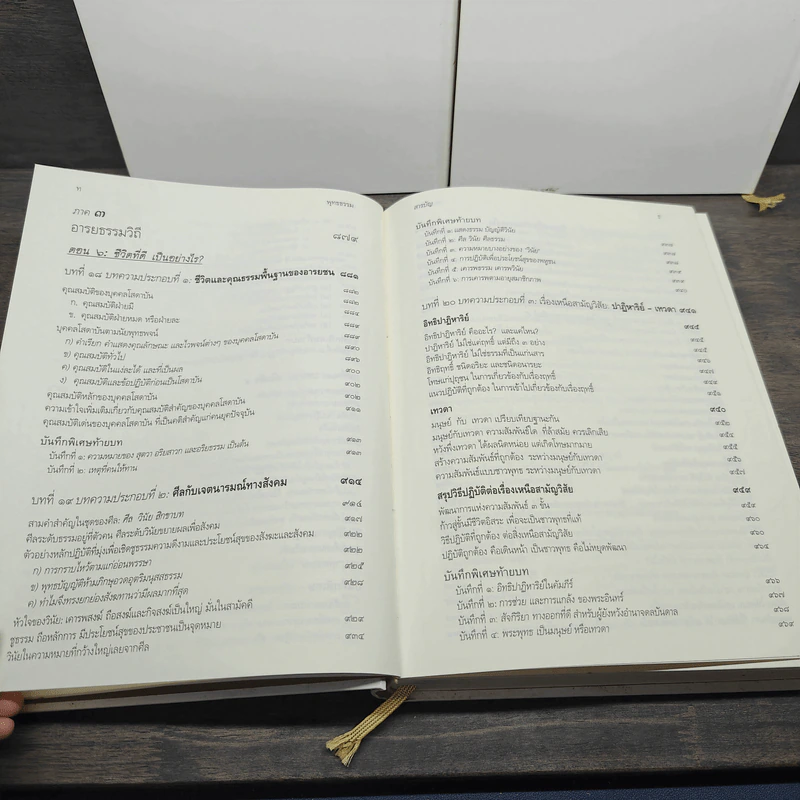 ท พุทธธรรม
ภาค ๓
อารยธรรมวิถี ๘๗๙
ตอน ๖: ชีวิตที่ดี เป็นอย่างไร?
บทที่ ๑๘ บทความประกอบที่ ๑: ชีวิตและคุณธรรมพื้นฐานของอารยชน ๘๘๑
คุณสมบัติของบุคคลโสดาบัน
ก. คุณสมบัติฝ่ายมี
ข. คุณสมบัติฝ่ายหมด หรือฝ่ายละ
บุคคลโสดาบันตามนัยพุทธพจน์
ก) คำเรียก คำแสดงคุณลักษณะ และไวพจน์ต่างๆ ของบุคคลโสดาบัน
ข) คุณสมบัติทั่วไป
ค) คุณสมบัติในแง่ละได้ และที่เป็นผล ๙๐๐
ง) คุณสมบัติและข้อปฏิบัติก่อนเป็นโสดาบัน ๙๐๒
คุณสมบัติหลักของบุคคลโสดาบัน ๙๐๒
ความเข้าใจเพิ่มเติมเกี่ยวกับคุณสมบัติสำคัญของบุคคลโสดาบัน ๙๑๑
คุณสมบัติเด่นของบุคคลโสดาบัน ที่เป็นคติสำคัญแก่คนยุคปัจจุบัน
บันทึกพิเศษท้ายบท ๙๑๓
บันทึกที่ ๑: ความหมายของ สุตวา อริยสาวก และอริยธรรม เป็นต้น ๙๑๓
บันทึกที่ ๒: เหตุที่คนให้ทาน
บทที่ ๑๙ บทความประกอบที่ ๒: ศีลกับเจตนารมณ์ทางสังคม ๙๑๔
สามคำสำคัญในชุดของศีล: ศีล วินัย สิกขาบท ๙๑๔
ศีลระดับธรรมอยู่ที่ตัวคน ศีลระดับวินัยขยายผลเพื่อสังคม ๙๑๗
ตัวอย่างหลักปฏิบัติที่มุ่งเพื่อเชิดชูธรรมความดีงามและประโยชน์สุขของสังฆะและสังคม ๙๒๒
ก) การกราบไหว้ตามแก่อ่อนพรรษา ๙๒๒
ข) พุทธบัญญัติห้ามภิกษุอวดอุตริมนุสสธรรม ๙๒๕
ค) ทำไมจึงทรงยกย่องสังฆทานว่ามีผลมากที่สุด ๙๒๘
หัวใจของวินัย: เคารพสงฆ์ ถือสงฆ์และกิจสงฆ์เป็นใหญ่ มั่นในสามัคคี
ชูธรรม ถือหลักการ มีประโยชน์สุขของประชาชนเป็นจุดหมาย ๙๒๙
วินัยในความหมายที่กว้างใหญ่เลยจากศีล ๙๓๔
สารบัญ
บันทึกพิเศษท้ายบท
บันทึกที่ ๑: แสดงธรรม บัญญัติวินัย
บันทึกที่ ๒: ศีล วินัย ศีลธรรม
บันทึกที่ ๓: ความหมายบางอย่างของ "วินัย"
บันทึกที่ ๔: การปฏิบัติเพื่อประโยชน์สุขของพหูชน
บันทึกที่ ๕: เคารพธรรม เคารพวินัย
บันทึกที่ ๖: การเคารพตามอายุสมาชิกภาพ
บทที่ ๒๐ บทความประกอบที่ ๓: เรื่องเหนือสามัญวิสัย: ปาฏิหาริย์ – เทวดา ๙๔๑
อิทธิปาฏิหาริย์
อิทธิปาฏิหาริย์ คืออะไร? และแค่ไหน?
ปาฏิหาริย์ ไม่ใช่แค่ฤทธิ์ แต่มีถึง ๓ อย่าง
อิทธิปาฏิหาริย์ ไม่ใช่ธรรมที่เป็นแก่นสาร
อิทธิฤทธิ์ ชนิดอริยะ และชนิดอนารยะ
โทษแก่ปุถุชน ในการเกี่ยวข้องกับเรื่องฤทธิ์
แนวปฏิบัติที่ถูกต้อง ในการเข้าไปเกี่ยวข้องกับเรื่องฤทธิ์
เทวดา
มนุษย์ กับ เทวดา เปรียบเทียบฐานะกัน
มนุษย์กับเทวดา ความสัมพันธ์ใด ที่ล้าสมัย ควรเลิกเสีย
หวังพึ่งเทวดา ได้ผลนิดหน่อย แต่เกิดโทษมากมาย
สร้างความสัมพันธ์ที่ถูกต้อง ระหว่างมนุษย์กับเทวดา
ความสัมพันธ์แบบชาวพุทธ ระหว่างมนุษย์กับเทวดา ๙๕๗
สรุปวิธีปฏิบัติต่อเรื่องเหนือสามัญวิสัย ๙๕๙
พัฒนาการแห่งความสัมพันธ์ ๓ ขั้น ๙๕๙
ก้าวสู่ขั้นมีชีวิตอิสระ เพื่อจะเป็นชาวพุทธที่แท้ ๙๖๐
วิธีปฏิบัติที่ถูกต้อง ต่อสิ่งเหนือสามัญวิสัย ๙๖๐
ปฏิบัติถูกต้อง คือเดินหน้า เป็นชาวพุทธ คือไม่หยุดพัฒนา ๙๖๔
บันทึกพิเศษท้ายบท
บันทึกที่ ๑: อิทธิปาฏิหาริย์ในคัมภีร์ ๙๖๖
บันทึกที่ ๒: การช่วย และการแกล้ง ของพระอินทร์ ๙๖๗
บันทึกที่ ๓: สัจกิริยา ทางออกที่ดี สำหรับผู้ยังหวังอำนาจดลบันดาล ๙๖๘
บันทึกที่ ๔: พระพุทธ เป็นมนุษย์ หรือเทวดา ๙๖๙